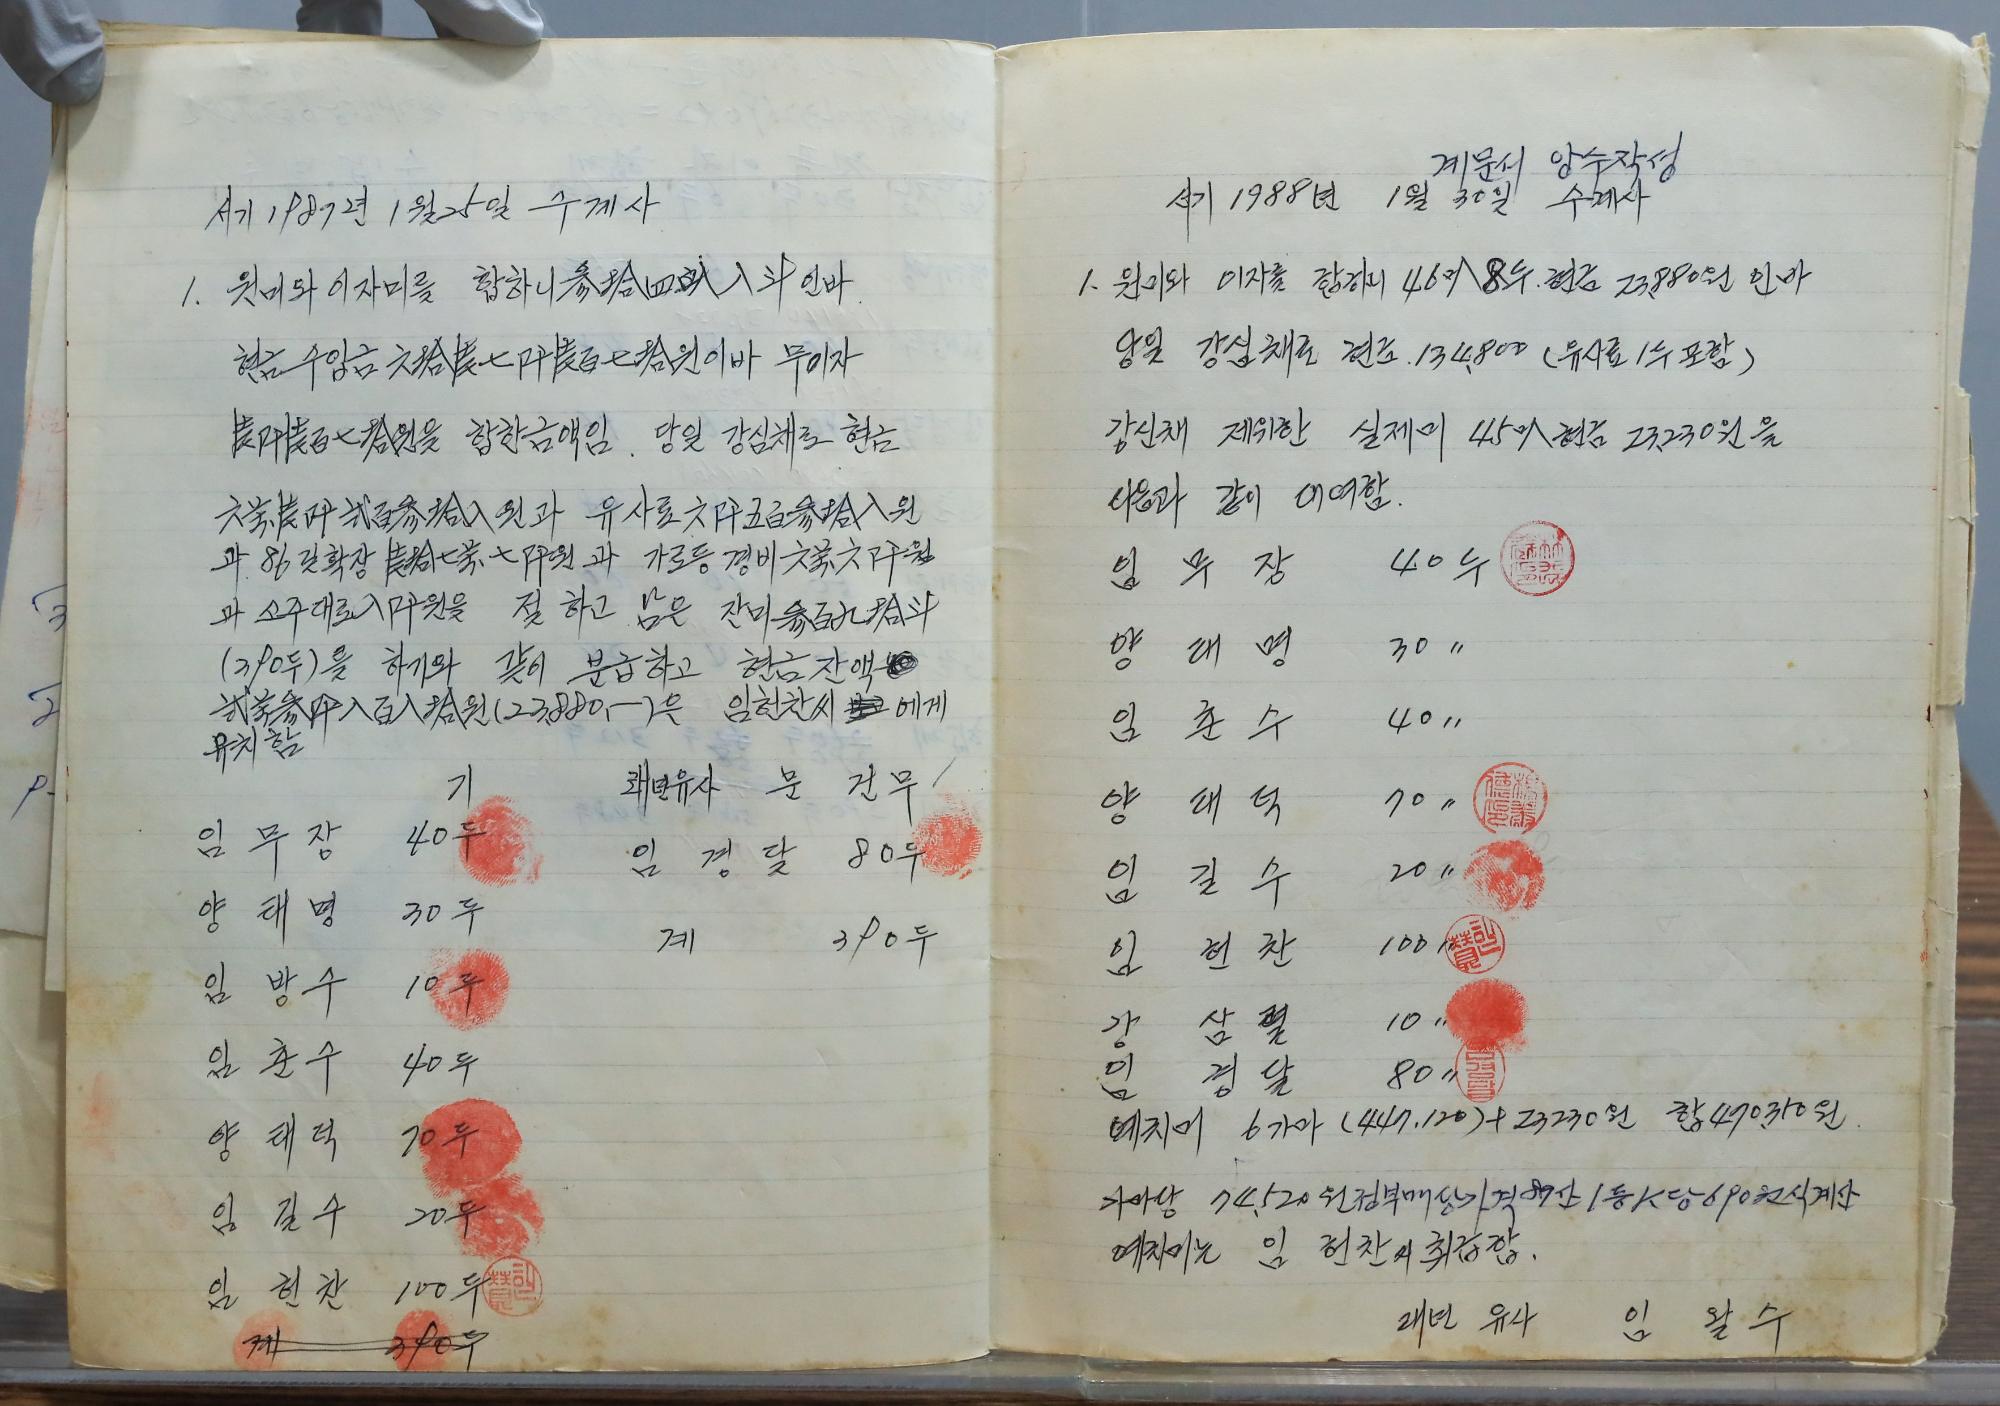 서기 1987年 1월 25일 수계사
1. 원미와 이자미를 합하니 参拾四叺 八斗 인바
현금 수입금 六拾陸 七阡陸百七拾원이바 무이자
陸阡陸百七拾원을 합한금액임. 당일 강심채로 현금
六萬陸阡弐百参拾八원과 유사료 六阡五百参拾八원
과 86 길확장 陸拾七萬七阡원과 가로등 경비 六萬六阡원
과 소주대로 八阡원을 절하고 남은 잔미 参百九拾斗
(390두)를 하기와 같이 분급하고 현금 잔액
弐萬参阡八百八拾원(23,880,-)은 임헌찬씨 에게
유치함
기
임 무 장 40두
양 태 명 30두
임 방 수 10두
임 춘 수 40두
양 태 덕 70두
임 길 수 20두
임 헌 찬 100두
계 390두
래년유사 문 건 무
임 경 달 80두
계 390두
계문서 양수작성
서기 1988년 1월 30일 수계사
1. 원미와 이자를 합하니 46叺 8두. 현금 23,880원 인바
당일 강심채로 현금 134,800 (유사료 1두 포함)
강신채 제위한 실제미 45叺 현금 23,230원을
사용과 같이 대여함.
임 무 장 40두
양 태 명 30〃
임 춘 수 40〃
양 태 덕 70〃
임 길 수 20〃
임 헌 찬 100〃
강 삼 10〃
임 경 달 80〃
예치미 6가마 (447,120)+23230원 합 470,350원.
가마당 74,520원 정부매상가격 87산 1등 K당 690원식 계산
예치미는 임 헌 찬씨 취급함.
래년 유사 임 왈 수